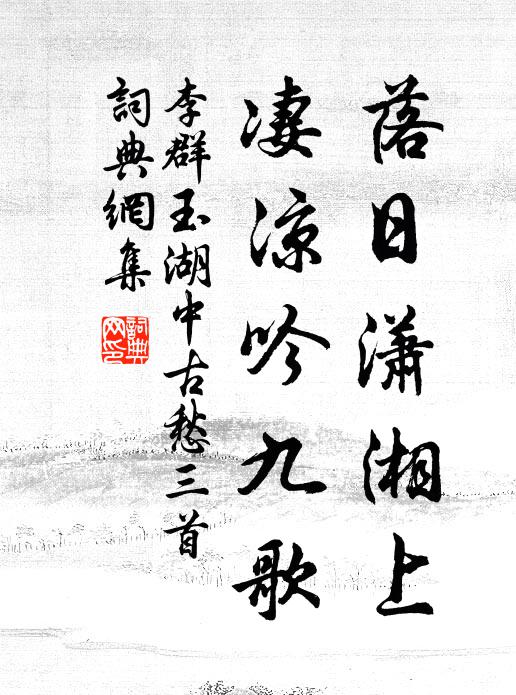 落日瀟湘上
凄涼吟九歌
李群玉湖中古愁三首
詞典網集
詞典網印